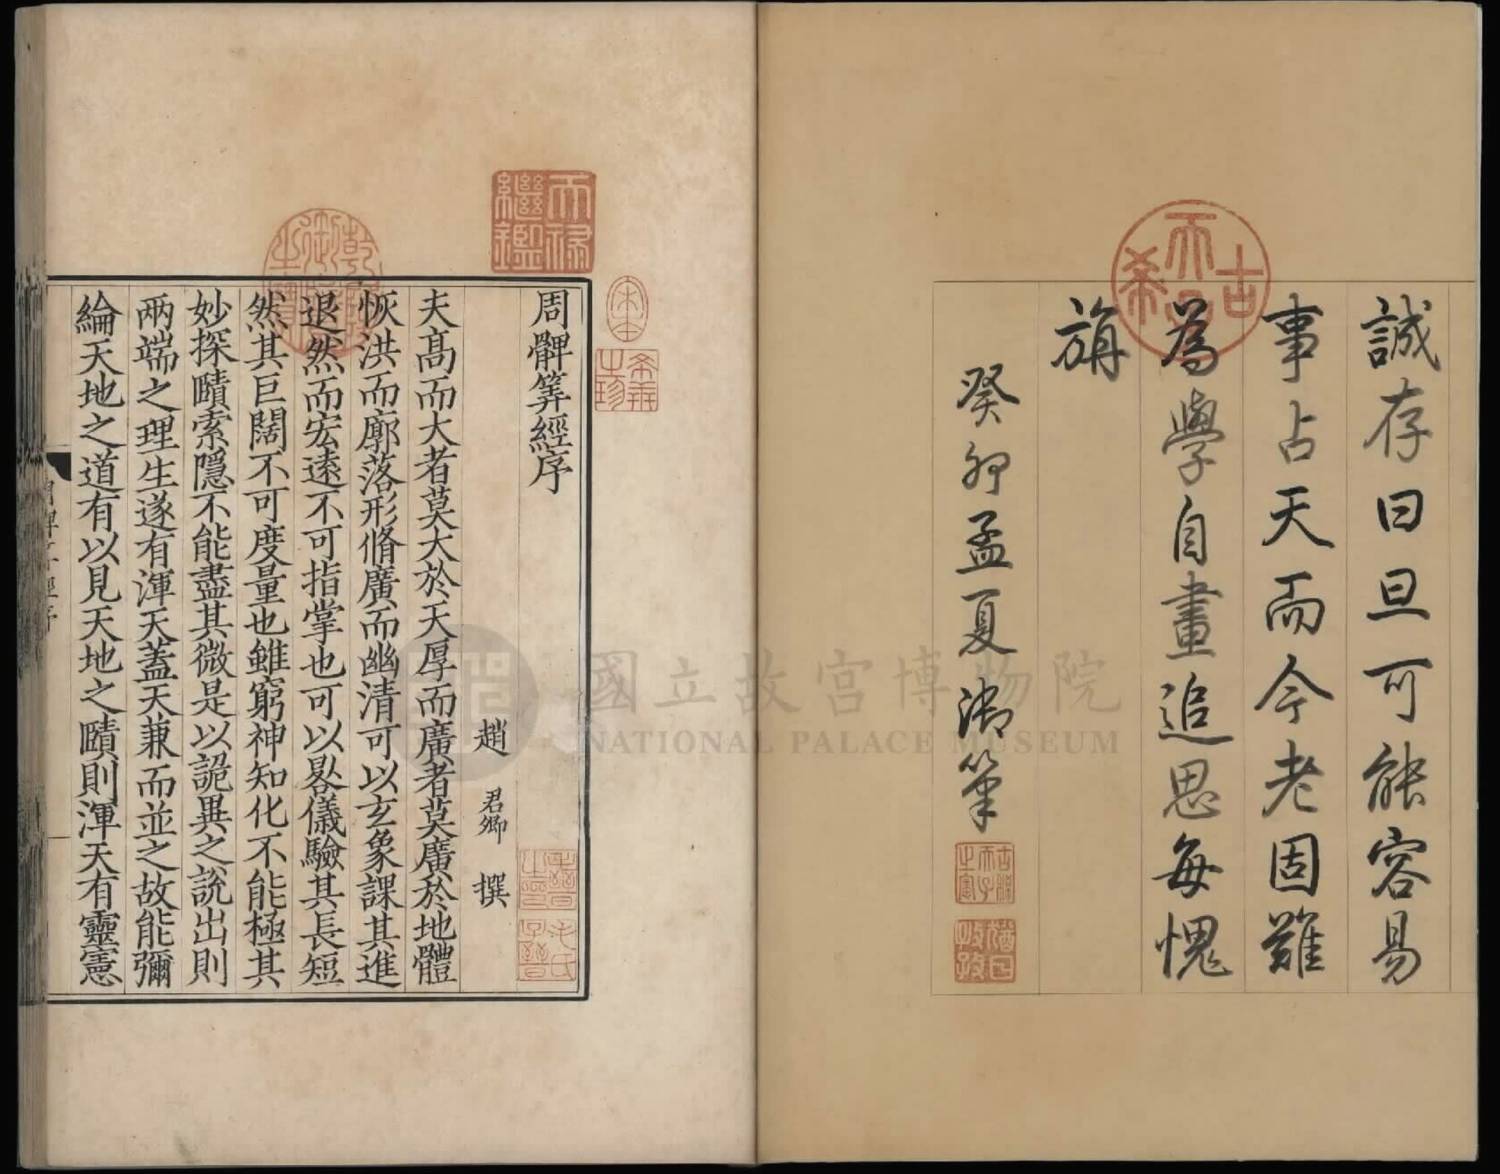 誠存曰旦可能容易
事占天而今老固難
為學自畫追思每愧
旃
癸卯孟夏御筆
古稀天子
周髀筭經序
趙君卿撰
夫高而大者莫大於天厚而廣者莫廣於地體
恢洪而廓落形脩廣而幽清可以玄象課其進
退然而宏遠不可指掌也可以晷儀驗其長短
然其巨闊不可度量也雖窮神知化不能極其
妙探賾索隱不能盡其微是以詭異之說出則
兩端之理生遂有渾天蓋天兼而並之故能彌
綸天地之道有以見天地之賾則渾天有靈憲
天祿繼鑑
乾隆御覽之寶
宋本
希世之珍
毛氏子晉
國立故宮博物院
NATIONAL PALACE MUSEUM